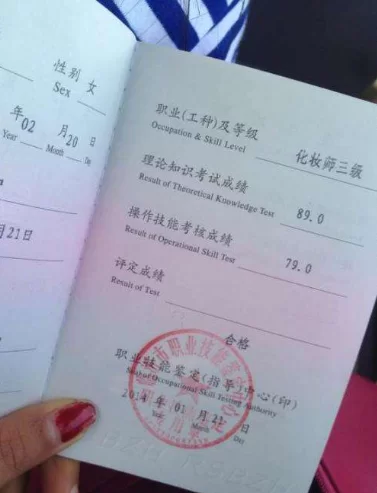 性别 女
Sex
年02月20日
Year Month Day
月21日
职业(工种)及等级
Occupation & Skill Level
化妆师三级
理论知识考试成绩
Result of Theoretical Knowledge Test 89.0
操作技能考核成绩
Result of Operational Skill Test 79.0
评定成绩
Result of Test
合格
职业技能鉴定(指导)中心(印)
of Occupational Skill Testing Authority
2014 年 01 月 21 日
Year Month Day